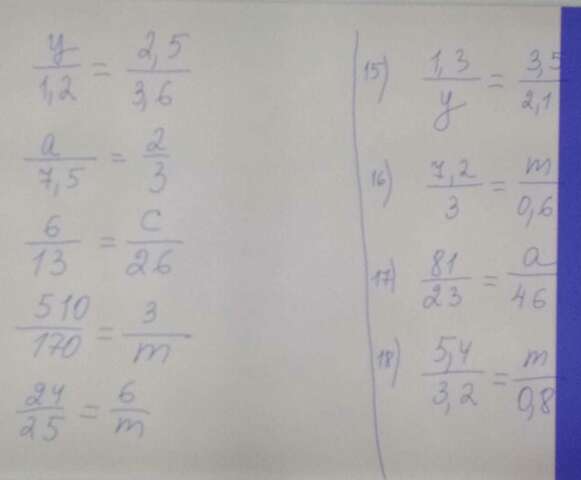 y/1,2 = 2,5/3,6
a/7,5 = 2/3
6/13 = c/26
510/170 = 3/m
24/25 = 6/m
15) 1,3/y = 3,5/2,1
16) 7,2/3 = m/0,6
17) 81/23 = a/46
18) 5,4/3,2 = m/0,8